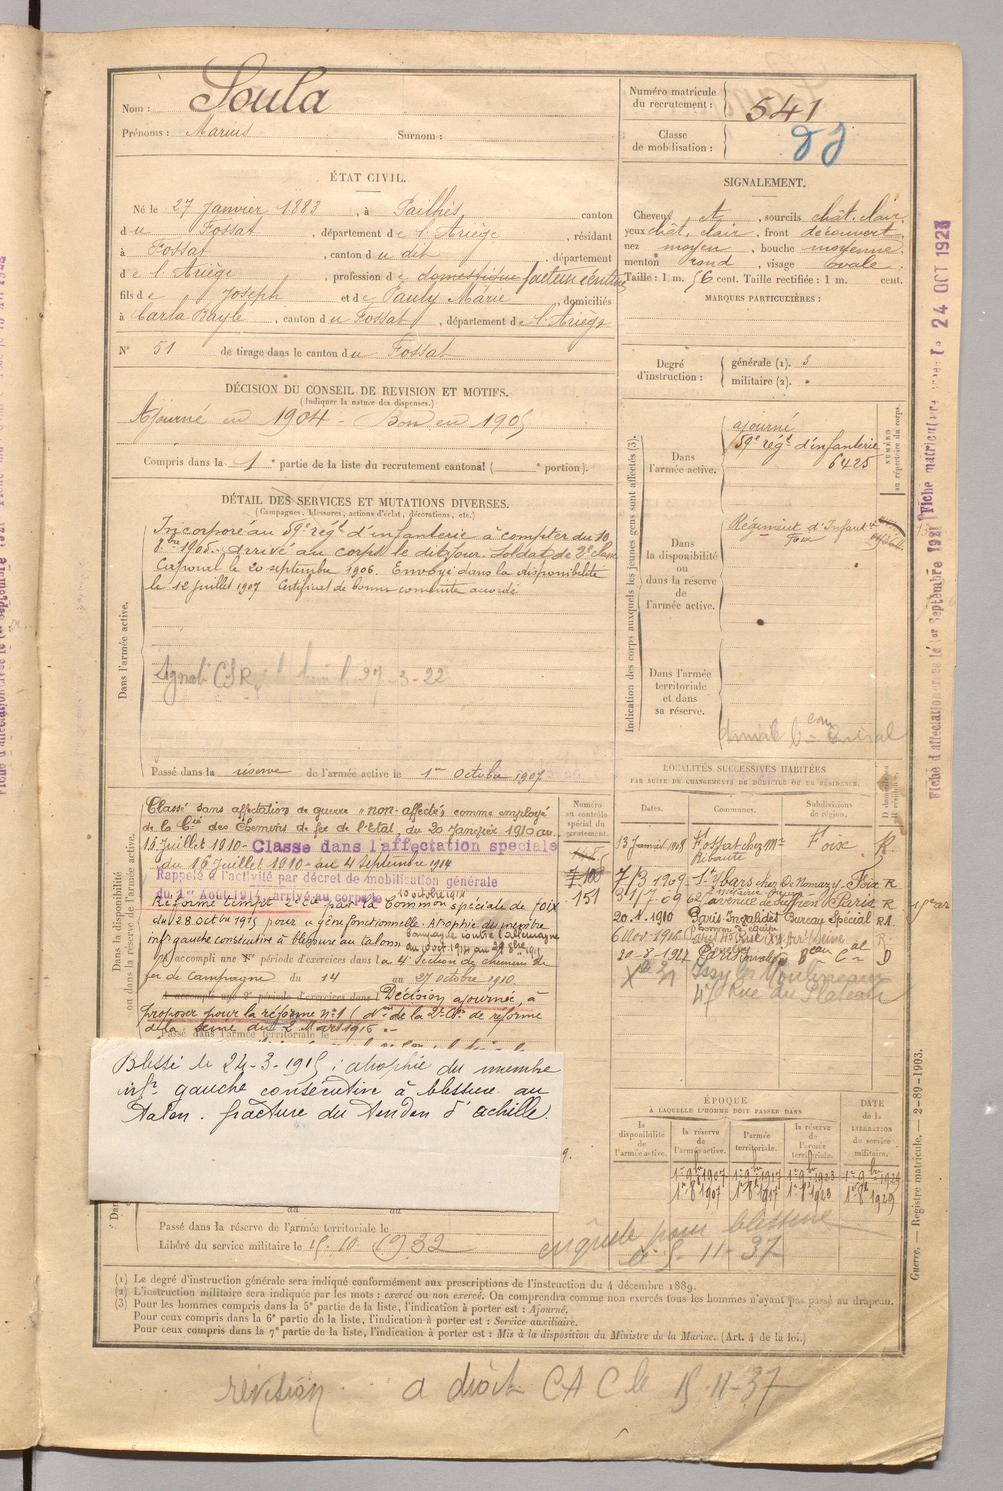 Nom : Soula
Prénoms : Marius Surnom :
Numéro matricule du recrutement : 541
Classe de mobilisation :
ÉTAT CIVIL.
Né le 27 Janvier 1883, à Pailhès, canton
du Fossat, département de l'Ariège, résidant
à Fossat, canton du dit, département
de l'Ariège, profession de domestique facteur
fils de Joseph et de Pauly Marie, domiciliés
à Carla Bayle, canton du Fossat, département de l'Ariège
N° 51 de tirage dans le canton du Fossat
SIGNALEMENT.
Cheveux et, sourcils chât. clair.
yeux chât. clair, front découvert
nez moyen, bouche moyenne
menton rond, visage ovale
Taille : 1 m. 56 cent. Taille rectifiée : 1 m. cent.
MARQUES PARTICULIÈRES :
Degré d'instruction : générale (1). 3
militaire (2).
DÉCISION DU CONSEIL DE REVISION ET MOTIFS.
(Indiquer la nature des dispenses.)
Ajourné en 1904 - Bon en 1905
Compris dans la 1e partie de la liste du recrutement cantonal ( e portion).
DÉTAIL DES SERVICES ET MUTATIONS DIVERSES.
(Campagnes, blessures, actions d'éclat, décorations, etc.)
Dans l'armée active.
Incorporé au 59e régt d'infanterie à compter du 10
8bre 1905. arrivé au corps le dit jour. Soldat de 2e
Caporal le 20 septembre 1906. Envoyé dans la disponibilité
le 12 juillet 1907 Certificat de bonne conduite accordé
27-3-22
Passé dans la réserve de l'armée active le 1er Octobre 1907
Indication des corps auxquels les jeunes gens sont affectés (3).
Dans l'armée active.
ajourné
59e régt d'infanterie
6425
NUMÉRO au répertoire du corps.
Dans la disponibilité ou dans la réserve de l'armée active.
Régiment d'Infant
Foix
Dans l'armée territoriale et dans sa réserve.
Dans la disponibilité ou dans la réserve de l'armée active.
Classé sans affectation de guerre "non-affecté" comme employé
de la Cie des Chemins de fer de l'Etat, du 20 Janvier 1910 au
15 Juillet 1910 - Classe dans l'affectation speciale
du 16 Juillet 1910 - au 4 Septembre 1914
Rappelé à l'activité par décret de mobilisation générale
du 1er Août 1914 arrivé au corps le
Réformé temp par la Common spéciale de Foix
du 28 octobre 1915 pour gêne fonctionnelle. Atrophie du membre
infr gauche consécutive à blessure au talon
Campagne contre l'Allemagne
A accompli une 1e période d'exercices dans la 4e Section de chemins de
fer de Campagne du 14 au 27 octobre 1910.
A accompli une 2e période d'exercices dans l Décision ajournée, à
proposer pour la réforme n°1 ( de la 2e Con de réforme
de la Seine du 2 Mars 1916
Passé dans l'armée territoriale le
Numéro au contrôle spécial du recrutement.
151
LOCALITÉS SUCCESSIVES HABITÉES
PAR SUITE DE CHANGEMENTS DE DOMICILE OU DE RÉSIDENCE.
Dates. Communes. Subdivisions de région.
13 Janvier 1908 Fossat chez Mr Ribaute Foix R.
7/3 1909 St Ybars chez Foix R
31/7 09 avenue de Suffren Paris R
20.8.1910 Paris Invalides Bureau Spécial RA
20-8-1927 Paris D
Issy les Moulineaux
47 Rue du Plateau
Blessé le 24-3-1915 : atrophie du membre
infr gauche consécutive à blessure au
talon. fracture du tendon d'achille
ÉPOQUE
À LAQUELLE L'HOMME DOIT PASSER DANS
la disponibilité de l'armée active. la réserve de l'armée active. l'armée territoriale. la réserve de l'armée territoriale. DATE de la LIBÉRATION du service militaire.
1er 9bre 1907 1er 9bre 1917 1er 9bre 1923 1er 9bre 1929
1er 8bre 1907 1er 8bre 1917 1er 8bre 1923 1er 8bre 1929
Passé dans la réserve de l'armée territoriale le
Libéré du service militaire le 15. 10. 1932
enquête pour blessure
le 5-11-37
(1) Le degré d'instruction générale sera indiqué conformément aux prescriptions de l'instruction du 4 décembre 1889.
(2) L'instruction militaire sera indiquée par les mots : exercé ou non exercé. On comprendra comme non exercés tous les hommes n'ayant pas passé au drapeau.
(3) Pour les hommes compris dans la 5e partie de la liste, l'indication à porter est : Ajourné.
Pour ceux compris dans la 6e partie de la liste, l'indication à porter est : Service auxiliaire.
Pour ceux compris dans la 7e partie de la liste, l'indication à porter est : Mis à la disposition du Ministre de la Marine. (Art. 4 de la loi.)
revision a droit CAC le 15-11-37
Guerre. — Registre matricule. — 2-89-1903.
24 OCT 1923